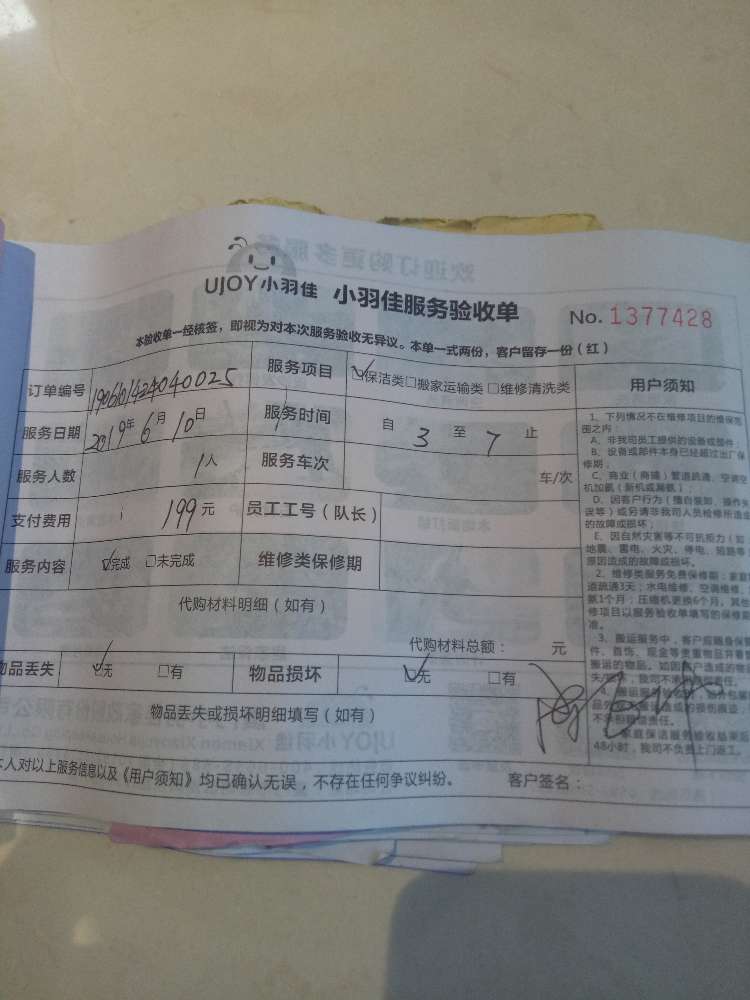 UJOY小羽佳 小羽佳服务验收单 No. 1377428
本验收单一经核签，即视为对本次服务验收无异议。本单一式两份，客户留存一份（红）
订单编号 服务项目 ☑保洁类□搬家运输类□维修清洗类 用户须知
服务日期 2019年6月10日 服务时间 自 3 至 7 止
服务人数 1人 服务车次 车/次
支付费用 199元 员工工号（队长）
服务内容 ☑完成 □未完成 维修类保修期
代购材料明细（如有）
代购材料总额： 元
物品丢失 ☑无 □有 物品损坏 ☑无 □有
物品丢失或损坏明细填写（如有）
本人对以上服务信息以及《用户须知》均已确认无误，不存在任何争议纠纷。 客户签名：
1、下列情况不在维修项目的维保范
围之内：
A、非我司员工提供的设备或部件；
B、设备或部件本身已经超过出厂保
修期；
C、商业（商铺）管道疏通、空调空
机加氨（新机或漏氨）；
D、因客户行为（擅自装卸、操作失
误等）或另请非我司人员检修所造成
的故障或损坏；
E、因自然灾害等不可抗拒力（如
地震、雷电、火灾、停电、短路等
原因造成的故障或损坏。
2、维修类服务免费保修期：家庭
道疏通3天；水电维修、空调维修、
氨1个月；压缩机更换6个月。其他
修项目以服务验收单填写的保修期
准。
3、搬运服务中，客户应随身保
件、首饰、现金等贵重物品并看
搬运的物品。如因客户造成的物
48小时，我司不负责上门返工。